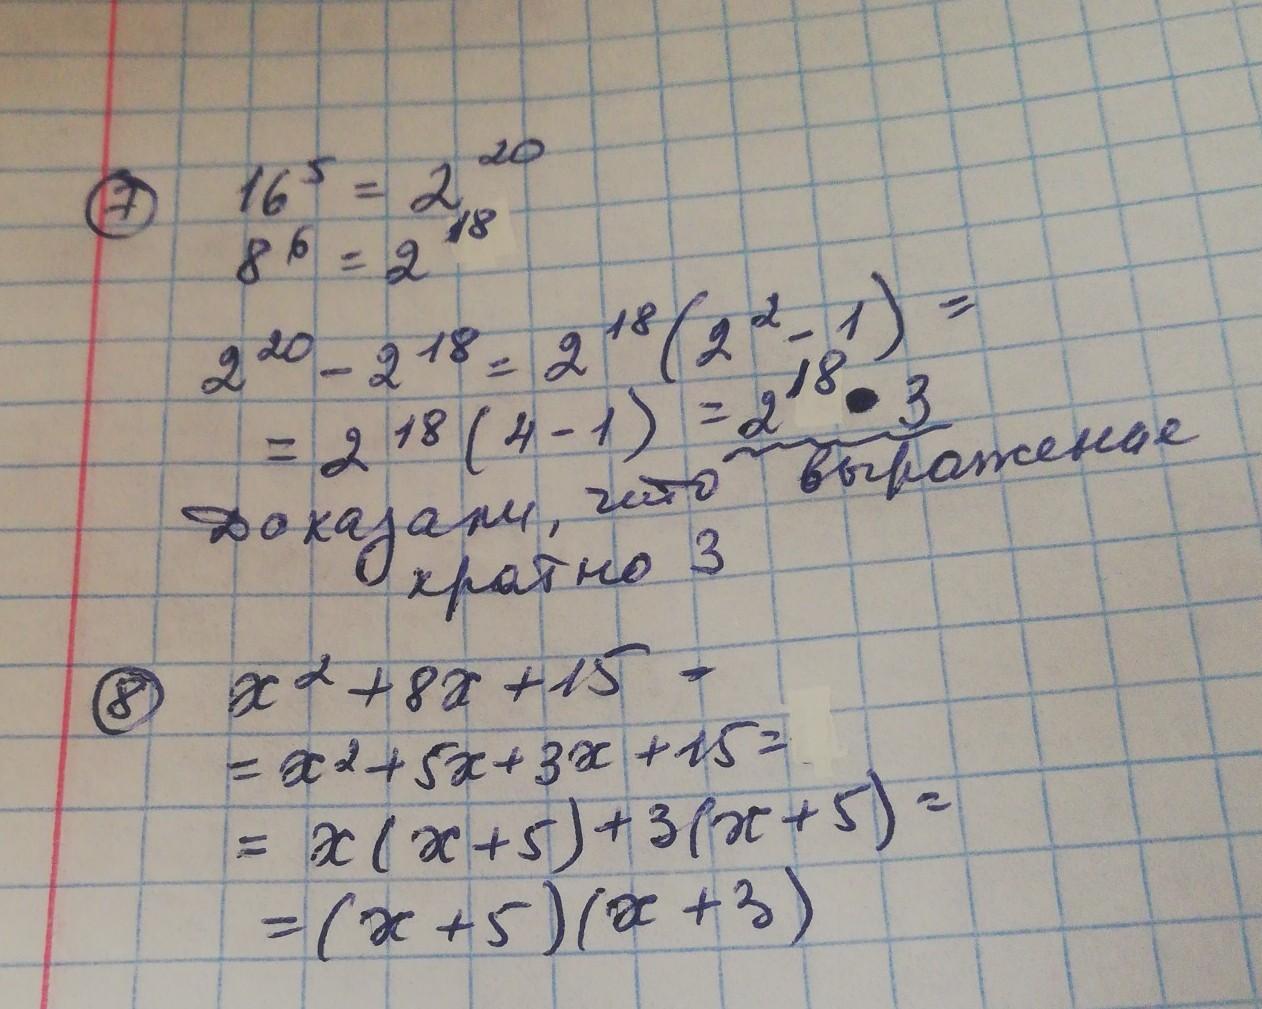 ⑦ 16⁵ = 2²⁰
8⁶ = 2¹⁸
2²⁰ - 2¹⁸ = 2¹⁸(2² - 1) =
= 2¹⁸(4 - 1) = 2¹⁸ • 3
Доказали, что выражение
кратно 3
⑧ x² + 8x + 15 =
= x² + 5x + 3x + 15 =
= x(x + 5) + 3(x + 5) =
= (x + 5)(x + 3)